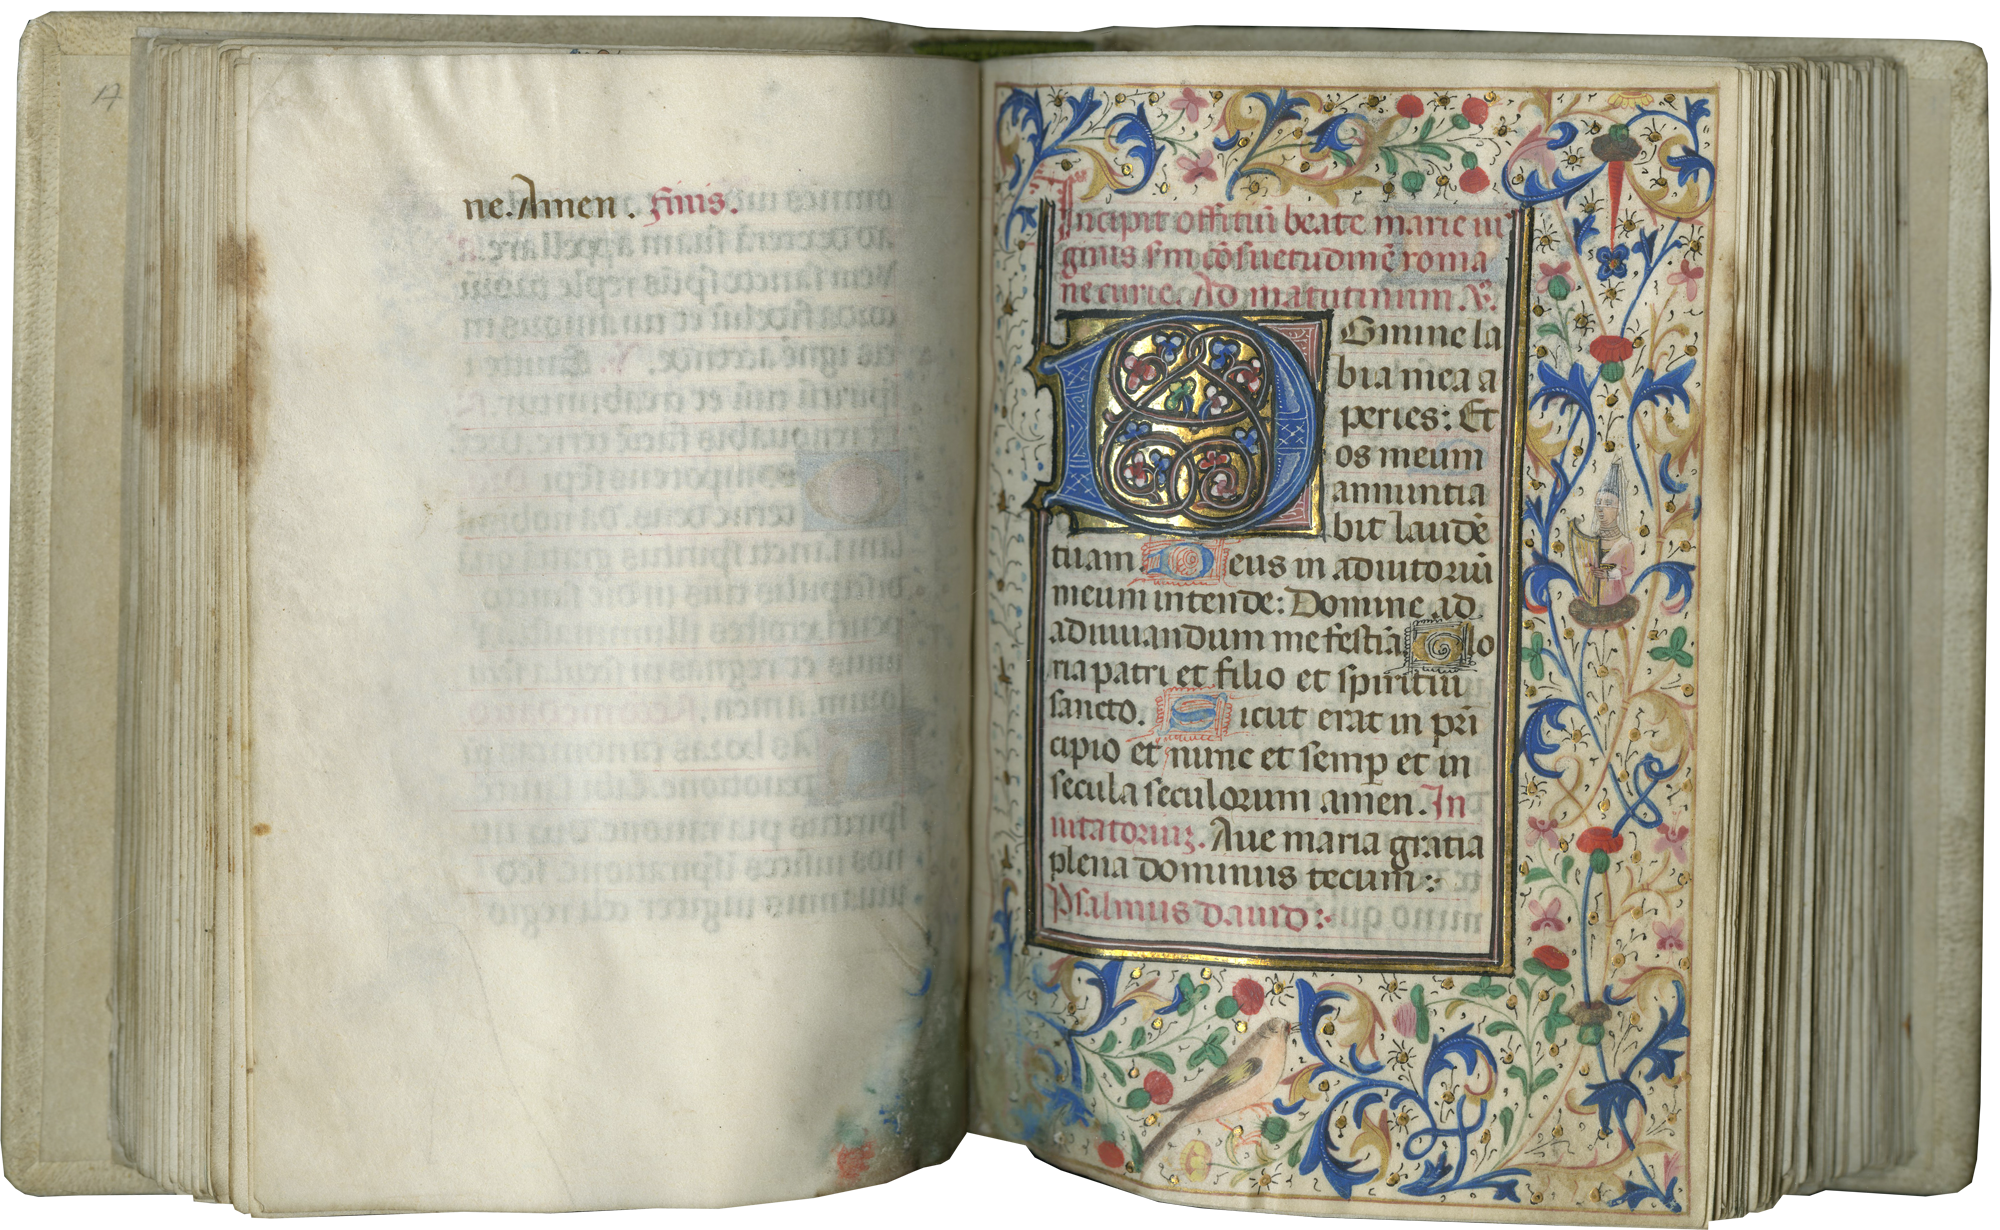 17
ne. Amen. finis.
Incipit offitiũ beate marie uir
ginis scđm cõsuetudinẽ roma
ne curie. Ad matutinum. V̾.
Domine la
bia mea a
peries: Et
os meum
annuntia
bit laudẽ
tuam Deus in adiutoriũ
meum intende: Domine ad
adiuuandum me festiã Glo
ria patri et filio et spiritui
sancto. Sicut erat in pri̅
cipio et nunc et semp̲ et in
secula seculorum amen. In
uitatoriuꝫ. Aue maria gratia
plena dominus tecum:
Psalmus dauid: